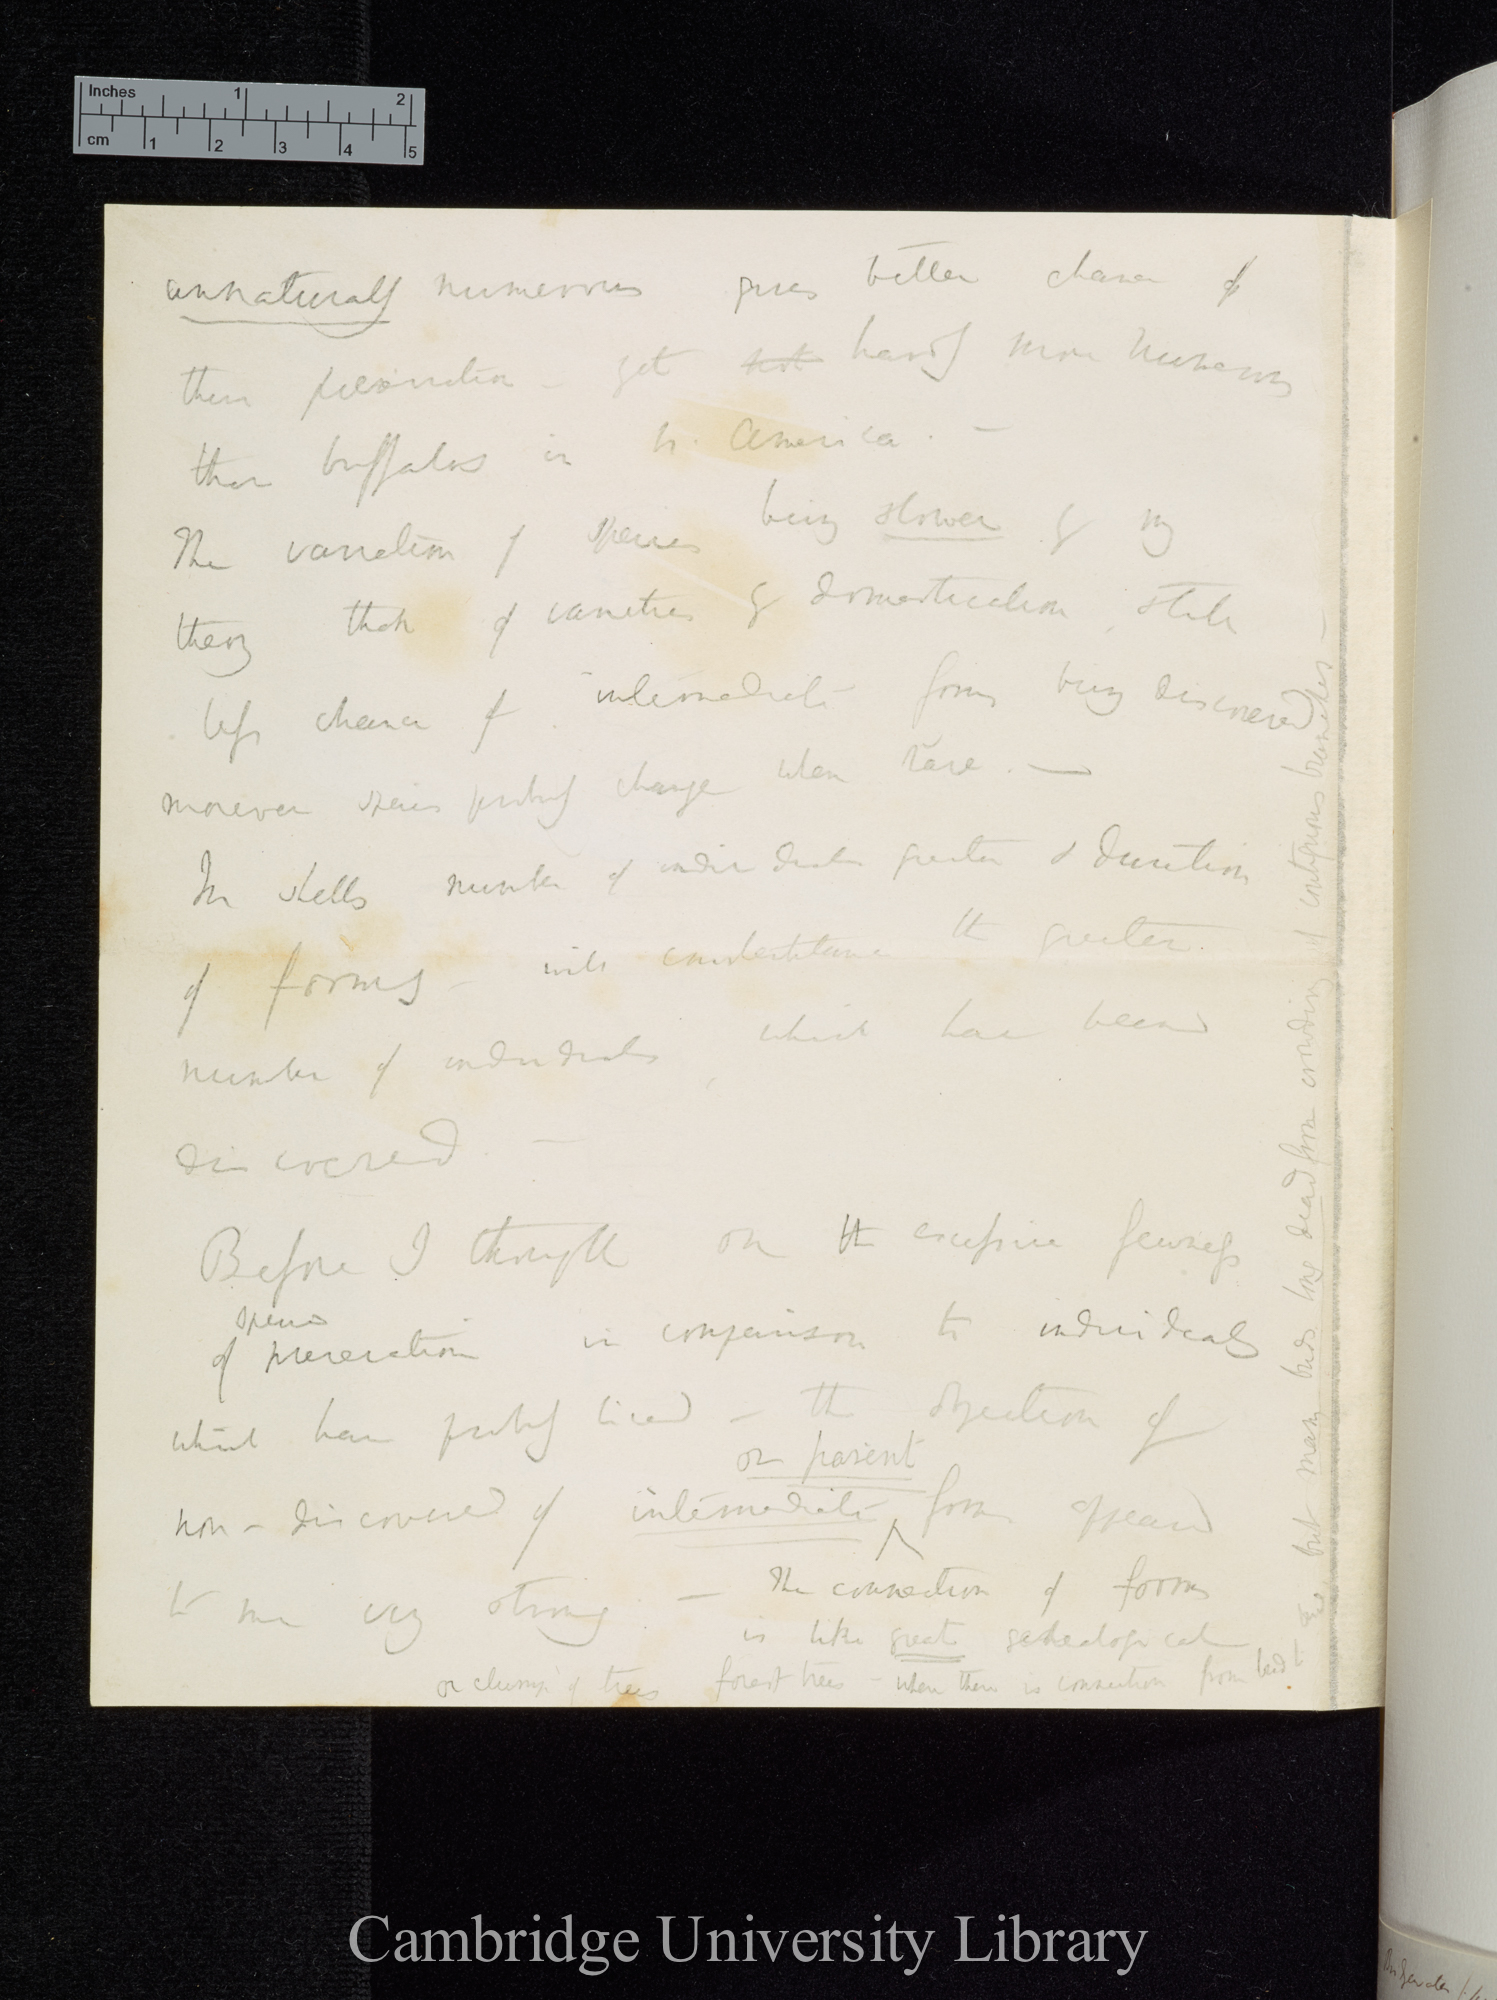 Inches 1 2
cm 1 2 3 4 5
unnaturally numerous gives better chance of
their preservation — yet not hardly more numerous
than buffalos in N. America. —
The variation of species being slower by my
theory than of varieties by domestication, still
less chance of intermediate forms being discovered
moreover species probably change when rare. —
In shells number of individuals greater & duration
of forms — will counterbalance the greater
number of individuals, which have been
discovered —
Before I thought on the excessive fewness
species
of preservation in comparison to individuals
which have probably lived — the objection of
or parent
non-discovered of intermediate forms appeared
to me very strong — The connection of forms
is like great genealogical
or clump of trees forest trees — when there is connection from bud to
End but many buds long dead from crowding of contiguous branches —
Cambridge University Library